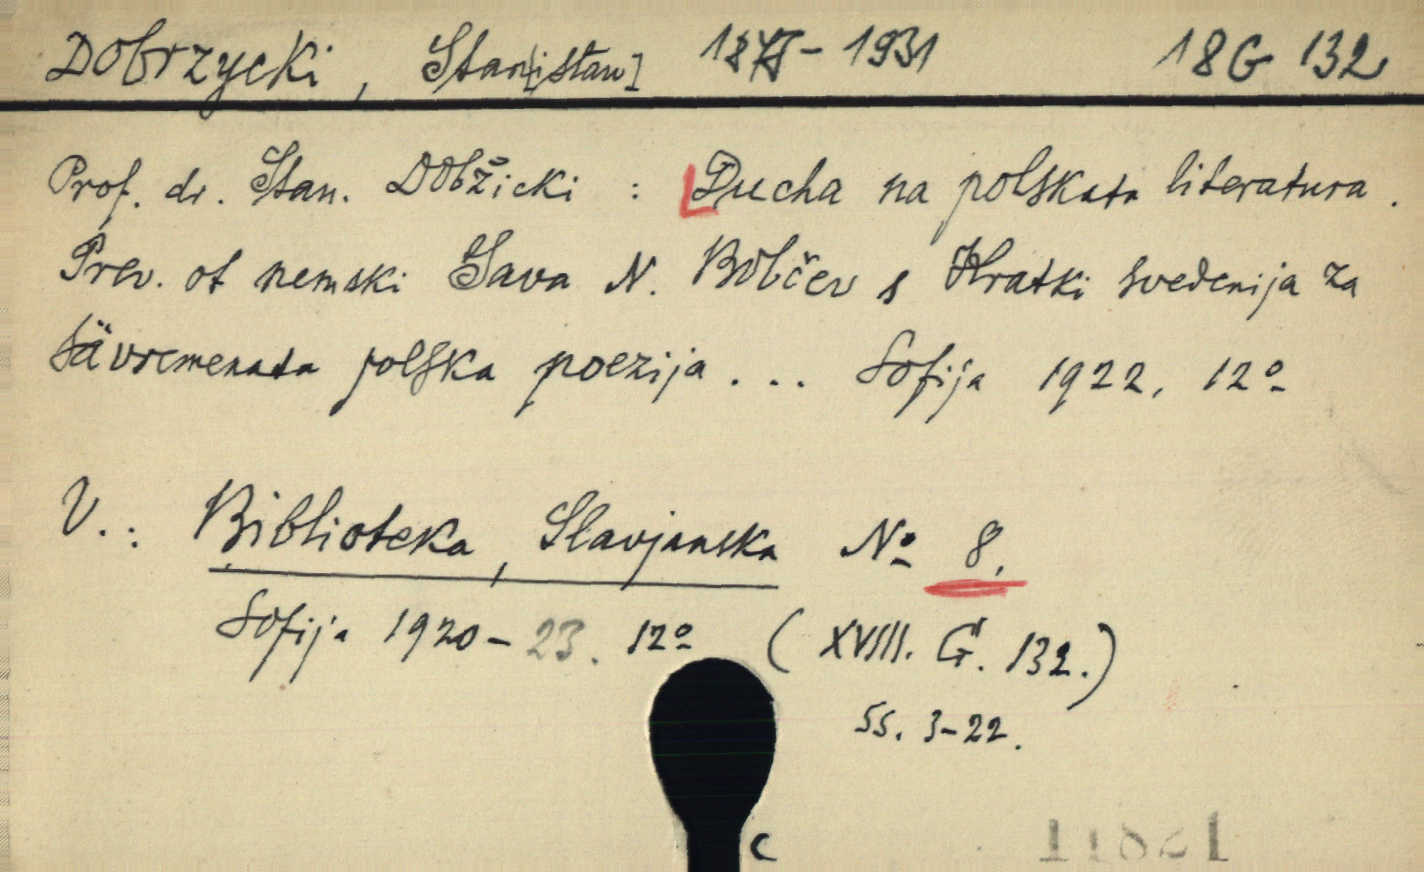 Dobrzycki, Stan[isław] 18 - 1931 18 G 132
Prof. dr. Stan. Dobžicki : Ducha na polskata literatura.
Prev. ot nemski Sava N. Bobčev s Kratki svedenija za
săvremenata polska poezija ... Sofija 1922, 12º
V.: Biblioteka, Slavjanska Nº 8,
Sofija 1920-23. 12º (XVIII. G. 132.)
SS. 3-22.
C